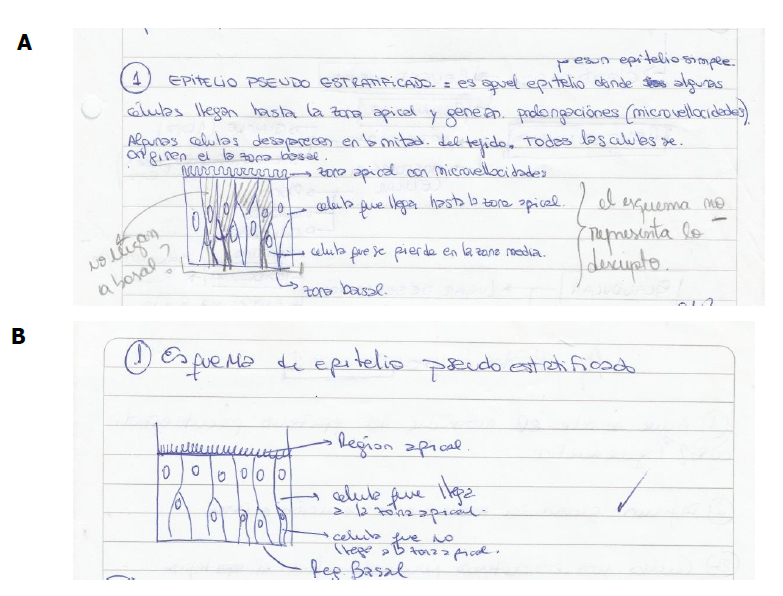 A
→ es un epitelio simple.
① EPITELIO PSEUDO ESTRATIFICADO. = es aquel epitelio donde algunas
células llegan hasta la zona apical y generan prolongaciones (microvellocidades)
Algunas celulas desaparecen en la mitad del tejido. Todos las celulas se
originan en la zona basal.
→ zona apical con microvellocidades
→ celula que llega hasta la zona apical.
→ celula que se pierde en la zona media.
→ zona basal.
no llegan
a basal?
el esquema no
representa lo
descripto.
B
① Esquema de epitelio pseudo estratificado
→ Region apical.
→ celula que llega
a la zona apical.
→ celula que no
llega a la zona apical.
Reg Basal